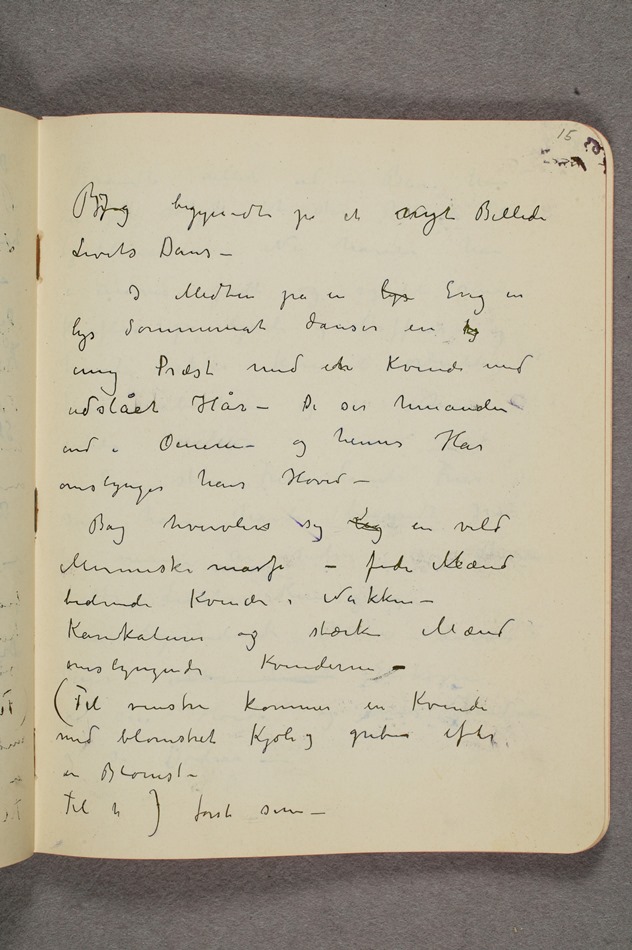 15
Jeg begyndte på et nyt Billede
Livets Dans –
I Midten på en lys Eng en
lys Sommernat danser en
ung Præst med en Kvinde med
udslået Hår – De ser hinanden
ind i Øinene – og hennes Hår
omslynges hans Hoved –
Bag hvirvler sig en vild
Menneskemasse – fede Mænd
bidende Kvinder i Nakken –
Karikaturer og stærke Mænd
omslyngende Kvinderne –
(Til venstre kommer en Kvinde
med blomstret Kjole og griber efter
en Blomst –
Til h ) først sene –